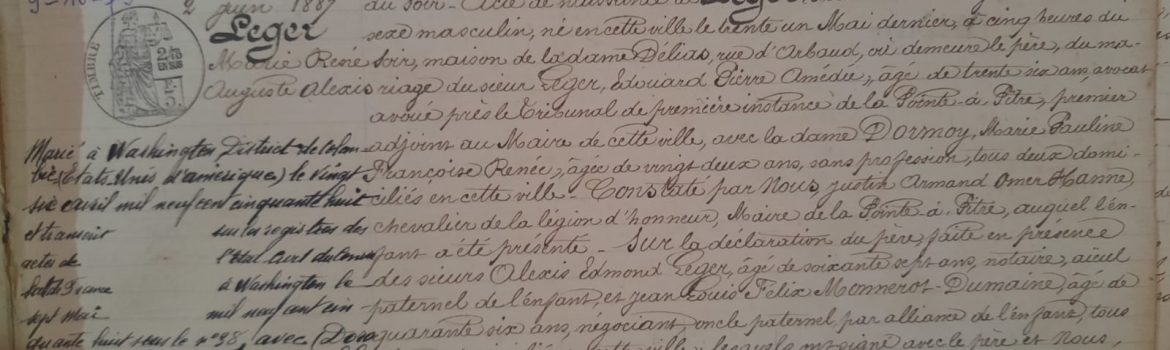 2 Juin 1887
Leger
Marie René
Auguste Alexis
TIMBRE
Marié à Washington, District de Colom-
bie (Etats-Unis d'amérique) le vingt
six avril mil neuf cent cinquante huit
et transcrit sur les registres des
actes de l'état civil du consu
lat de France à Washington le
sept mai mil neuf cent cin
quante huit sous le n° 98, avec (Doro
du soir - Acte de naissance de Leger
sexe masculin, né en cette ville le trente un Mai dernier, à cinq heures du
soir, maison de la dame Délias, rue d'Arbaud, où demeure le père, du ma-
riage du sieur Leger, Edouard Pierre Amédée, âgé de trente six ans, avocat
avoué près le Tribunal de première instance de la Pointe-à-Pitre, premier
adjoint au Maire de cette ville, avec la dame Dormoy, Marie Pauline
Françoise Renée, âgée de vingt deux ans, sans profession, tous deux domi-
ciliés en cette ville - Constaté par Nous, Justin Armand Omer Hanne,
chevalier de la légion d'honneur, Maire de la Pointe-à-Pitre, auquel l'en-
fant a été présenté - Sur la déclaration du père, faite en présence
des sieurs Alexis Edmond Leger, âgé de soixante sept ans, notaire, aïeul
paternel de l'enfant, et Jean Louis Félix Monnerot-Dumaine, âgé de
quarante six ans, négociant, oncle paternel par alliance de l'enfant, tous
cette ville, lesquels ont signé avec le père et Nous,